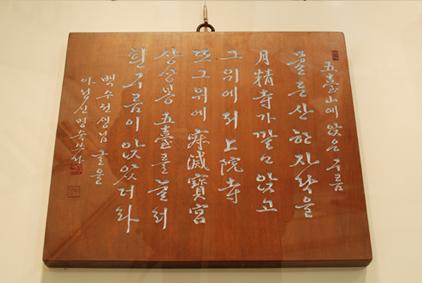 五臺山에 앉은 구름
물든 산 한 자락을
月精寺가 깔고 앉고
그 위에 더 上院寺
또 그 위에 寂滅寶宮
상상봉 五臺를 눌러
흰 구름이 앉았더라
백수선생님 글을